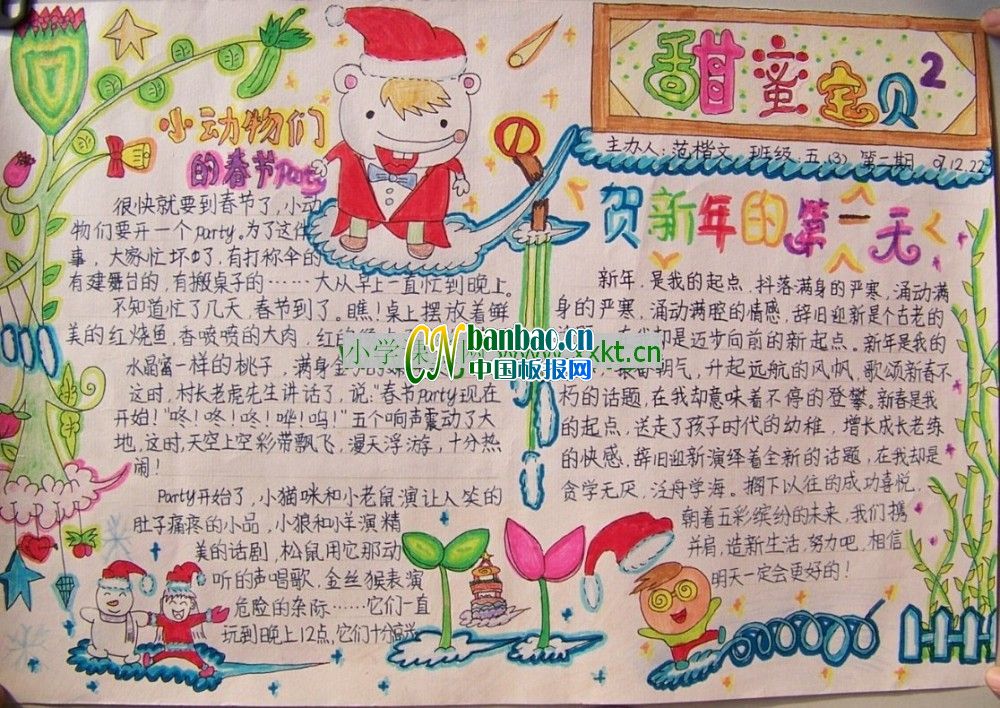 甜蜜宝贝2
主办人:范楷文 班级:五(3) 第二期 07.12.22
小动物们
的春节Party
很快就要到春节了,小动
物们要开一个party。为了这件
事,大家忙坏了,有打称伞的
有建舞台的,有搬桌子的……大从早上一直忙到晚上。
不知道忙了几天,春节到了。瞧!桌上摆放着鲜
美的红烧鱼,香喷喷的大肉,红的
水晶富一样的桃子 满身金
这时,村长老虎先生讲话了,说:“春节party现在
开始!”“咚!咚!咚!哗!呜!”五个响声震动了大
地,这时,天空上空彩带飘飞,漫天浮游,十分热
闹!
Party开始了,小猫咪和小老鼠演让人笑的
肚子痛疼的小品,小狼和小羊演精
美的话剧,松鼠用它那动
听的声唱歌,金丝猴表演
危险的杂际……它们一直
玩到晚上12点,它们十分高兴
贺新年的第一天
新年,是我的起点,抖落满身的严寒,涌动满
身的严寒,涌动满腔的情感,辞旧迎新是个古老的
在我却是迈步向前的新起点。新年是我的
朝气,升起远航的风帆,歌颂新春不
朽的话题,在我却意味着不停的登攀。新春是我
的起点,送走了孩子时代的幼稚,增长成长老练
的快感,辞旧迎新演绎着全新的话题,在我却是
贪学无厌,泛舟学海。搁下以往的成功喜悦,
朝着五彩缤纷的未来,我们携
并肩,造新生活,努力吧,相信
明天一定会更好的!
小学课 网 www. xxkt.cn
CN banbao.cn
中国板报网